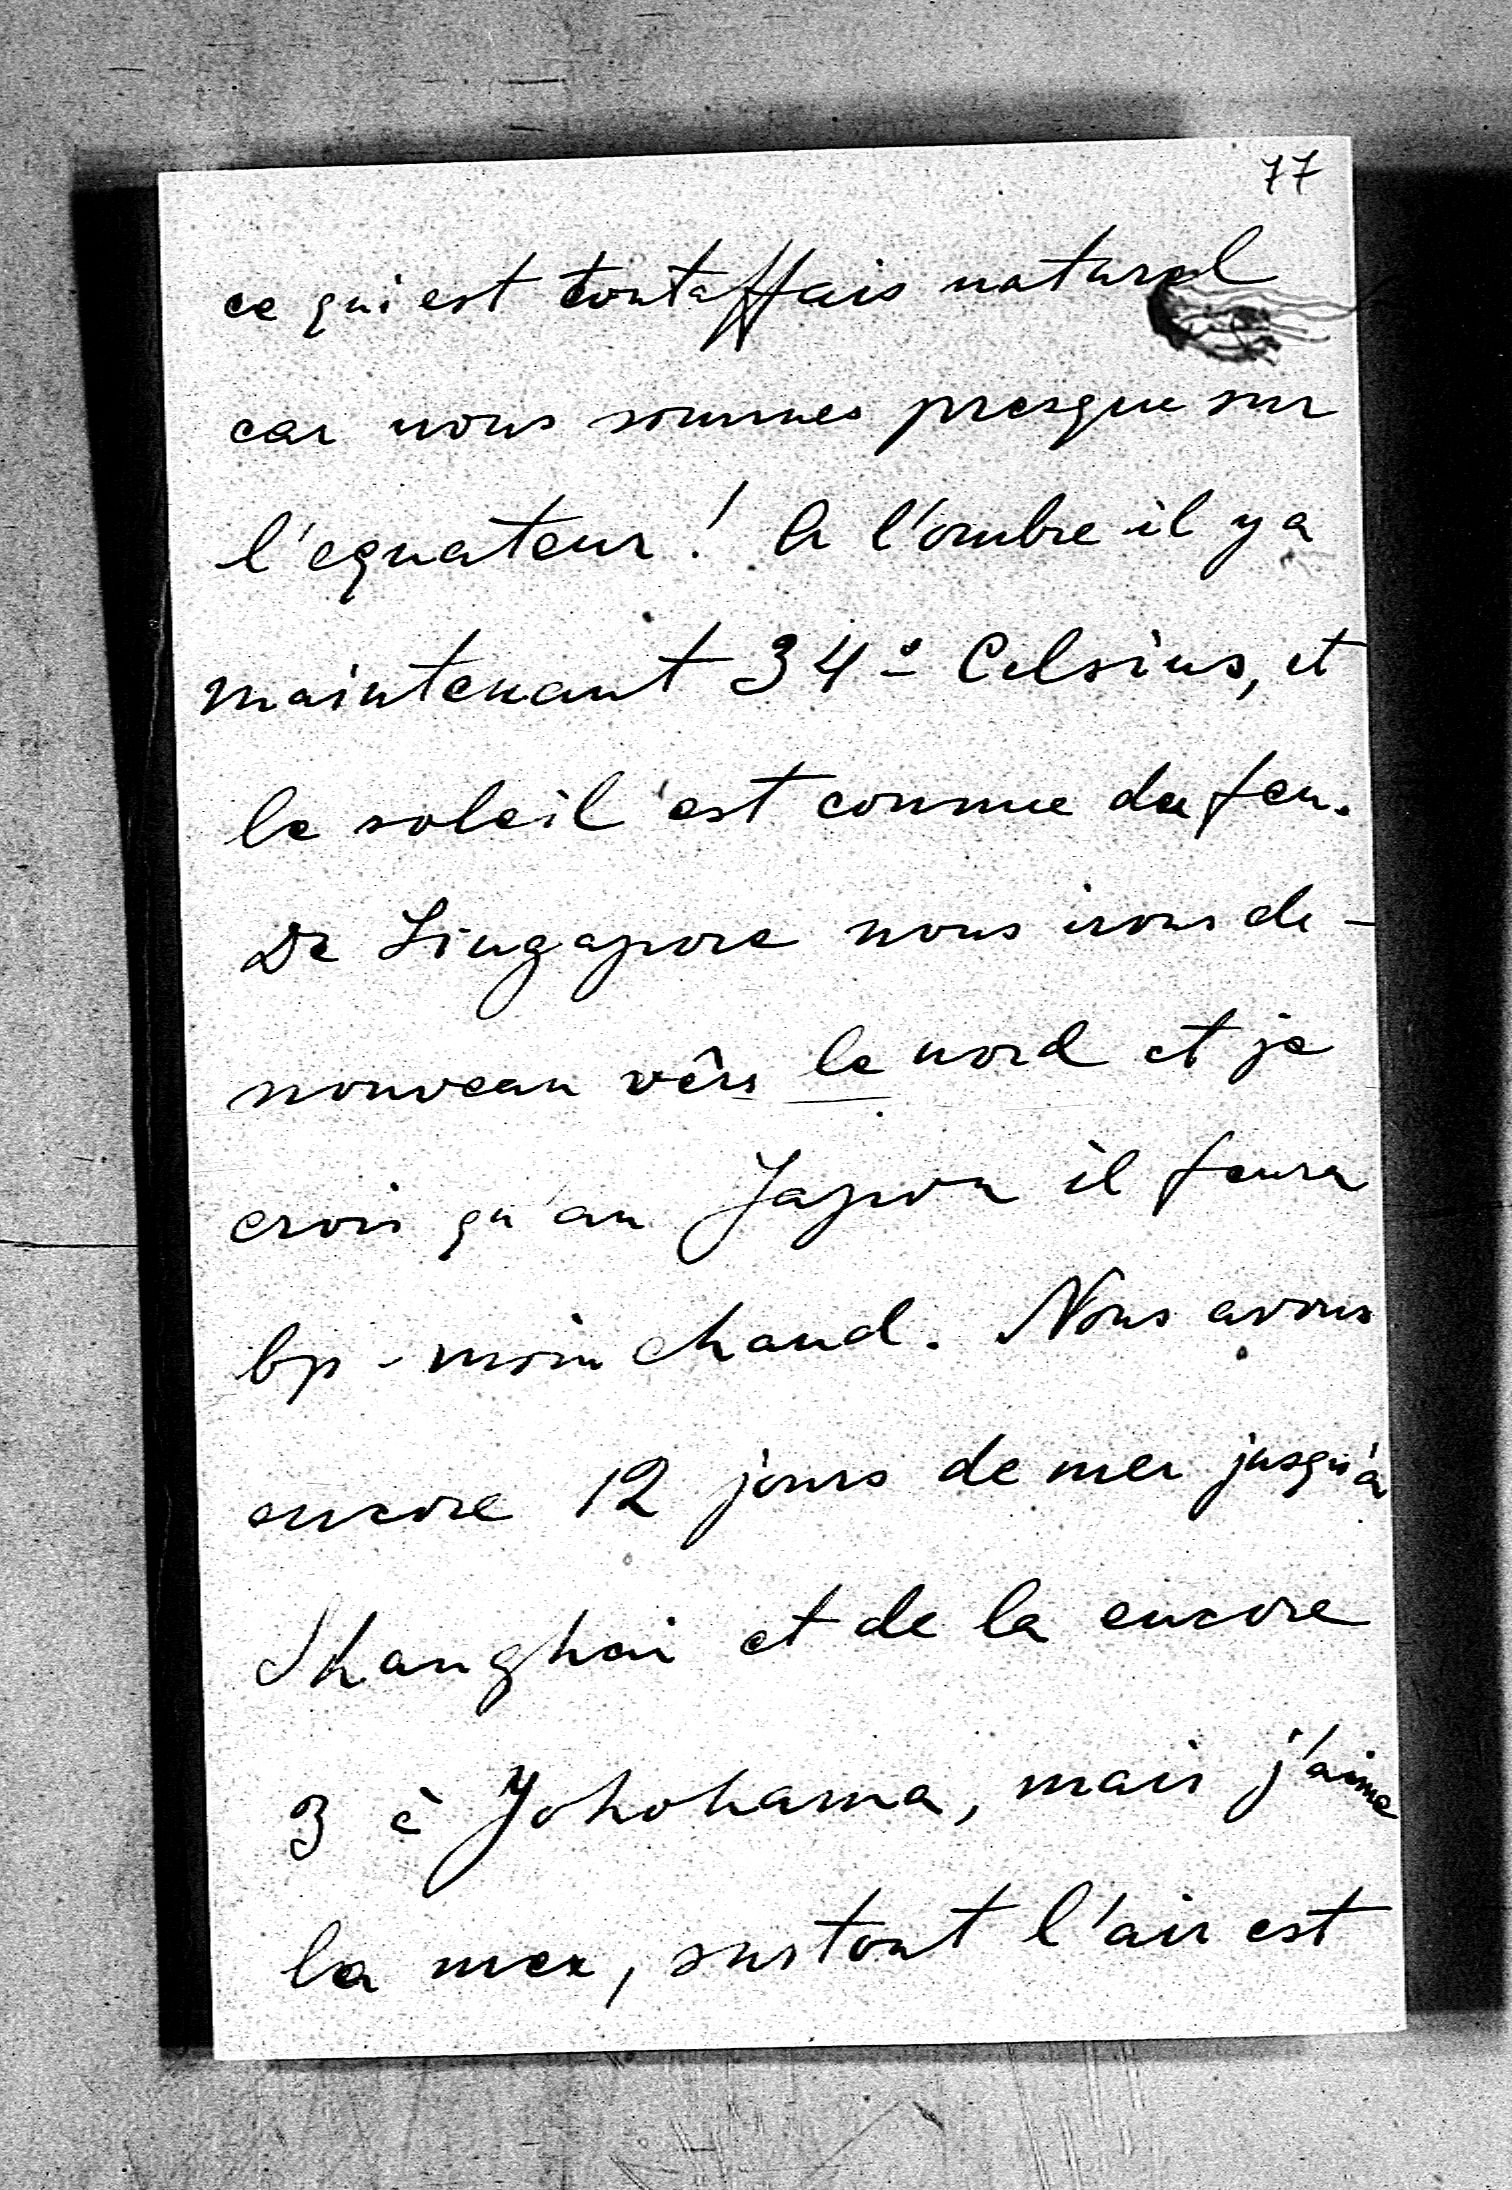 77
ce qui est toutaffais naturel
car nous sommes presque sur
l'equateur! A l'ombre il y a
maintenant 34° Celsius, et
le soleil est comme du feu.
De Singapore nous irons de-
nouveau vêrs le nord et je
crois qu'au Japon il feura
bp - moin chaud. Nous avons
encore 12 jours de mer jusqu'à
Shanghai et de la encore
3 à Yohohama, mais j'aime
la mer, surtout l'air est